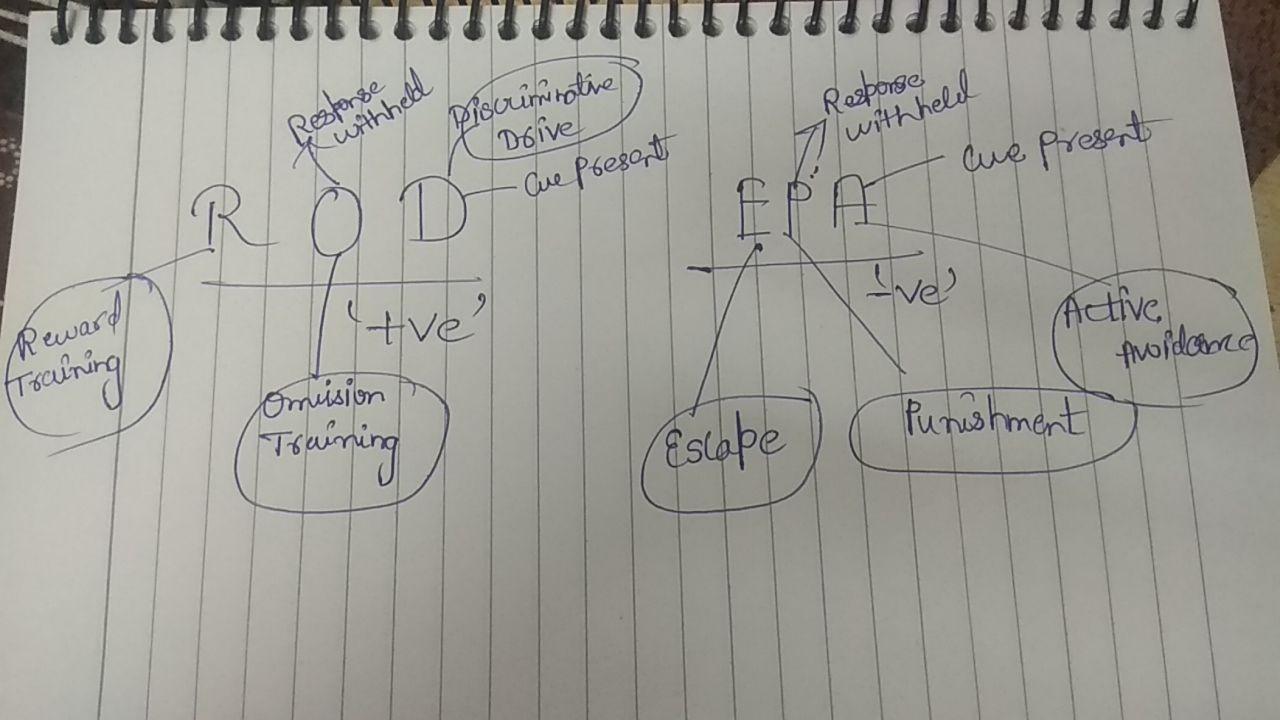 Response
withheld
Discriminative
Drive
Cue Present
R O D
'+ve'
Reward
Training
Omission
Training
Response
withheld
Cue Present
E P A
'-ve'
Active
Avoidance
Escape
Punishment